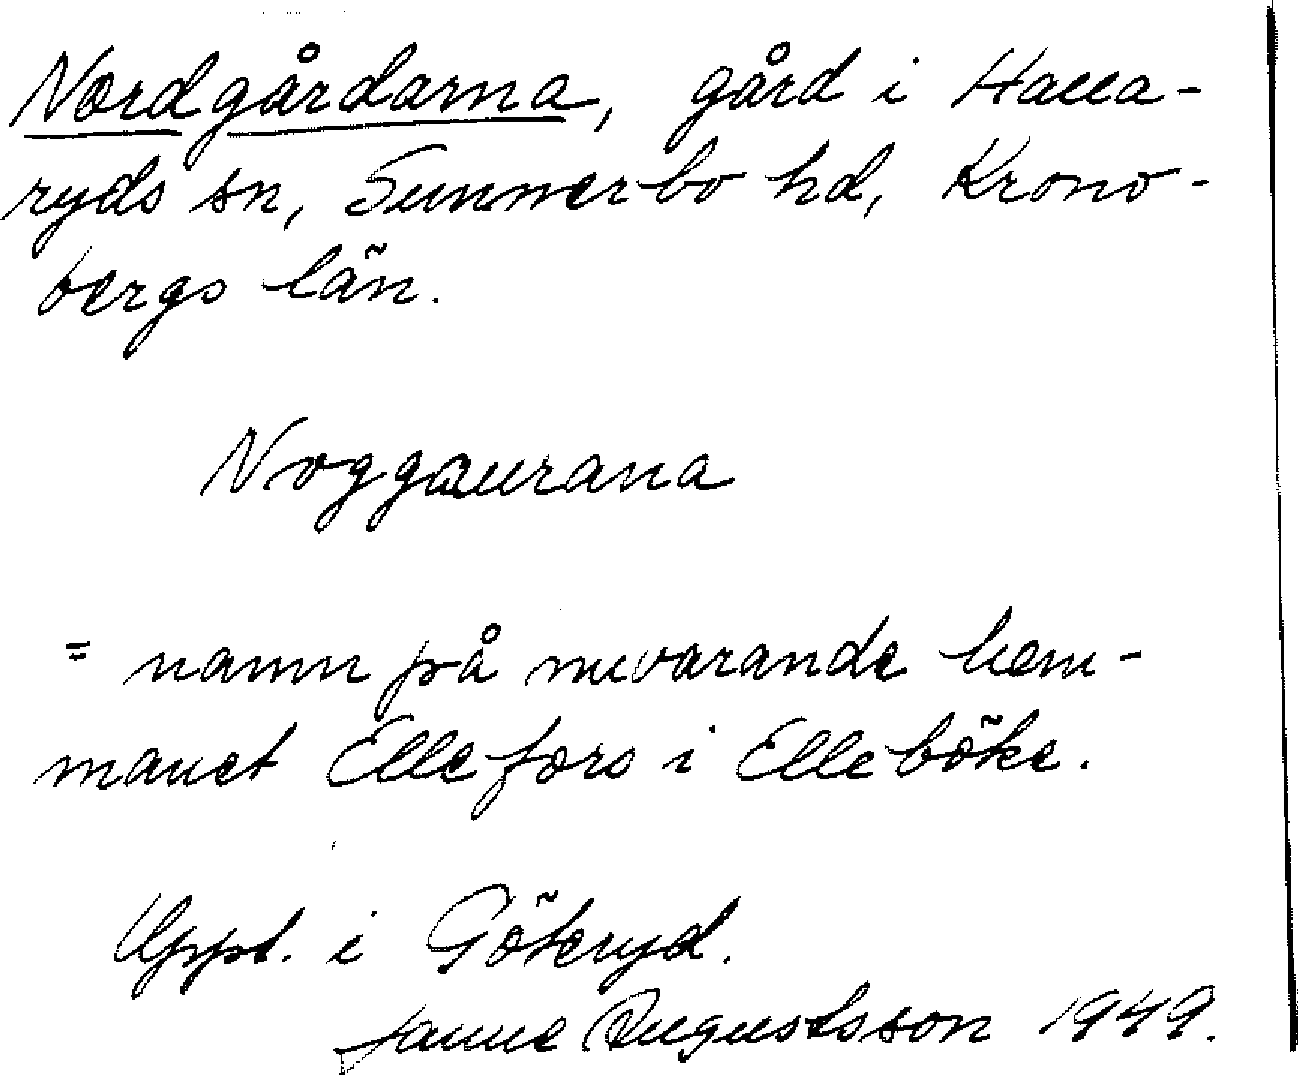 Nordgårdarna, gård i Halla-
ryds sn, Sunnerbo hd, Krono-
bergs län.
Noggaurana
= namn på nuvarande hem-
manet Ellefors i Elleböke.
Uppt. i Göteryd.
Janne Augustsson 1949.